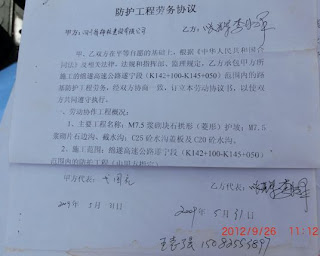 防护工程劳务协议
甲方:
乙方:
甲、乙双方在平等自愿的基础上，根据《中华人民共和国合
同法》及相关法律、法规和指挥部、监理规定，乙方承包甲方所
施工的绵遂高速公路遂宁段（K142+100-K145+050）范围内的路
基防护工程劳务，经双方协商一致，订立本劳动协议书，以使双
方共同遵守执行。
一、劳动协作工程概况：
1、主要工程名称：M7.5浆砌块石拱形（菱形）护坡；M7.5
浆砌片石边沟、截水沟；C25砼水沟盖板及C20砼水沟。
2、施工范围：绵遂高速公路遂宁段（K142+100-K145+050）
范围内的防护工程
甲方代表：
乙方代表：
2009年 5月 31日
2009年 5月31日
2012/9/26 11:12